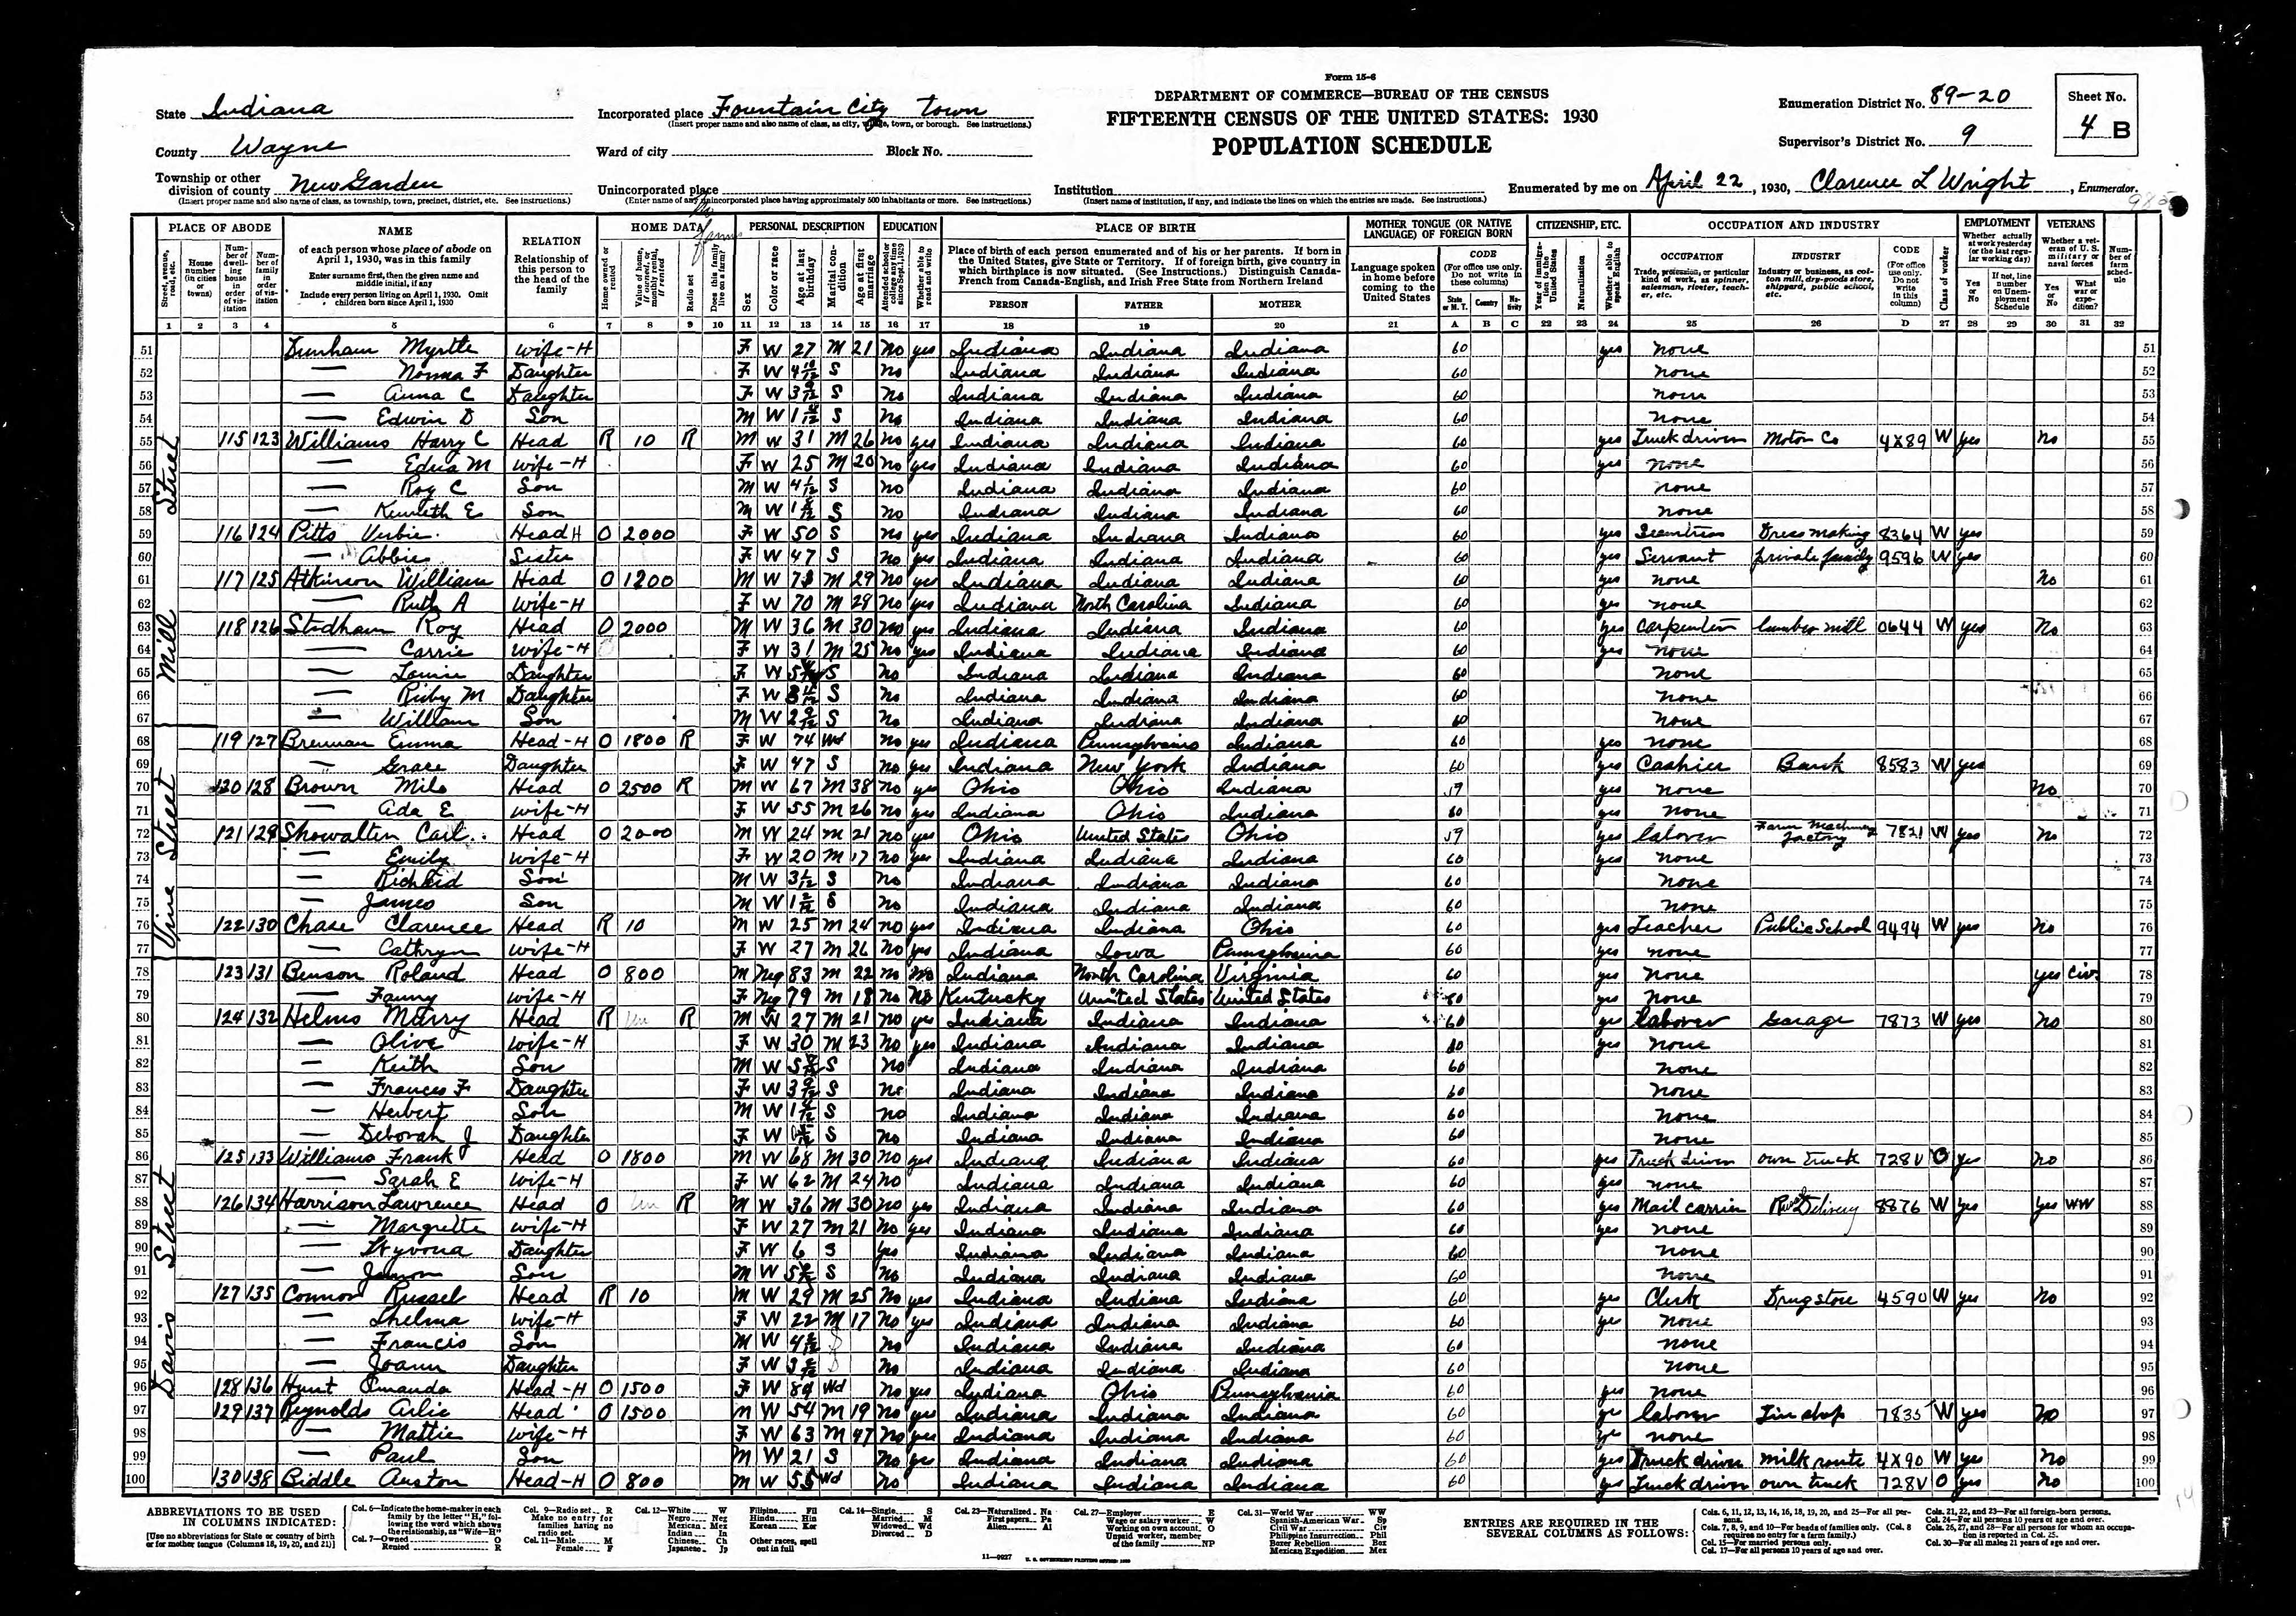 Form 15-6
DEPARTMENT OF COMMERCE—BUREAU OF THE CENSUS
FIFTEENTH CENSUS OF THE UNITED STATES: 1930
POPULATION SCHEDULE
State Indiana
County Wayne
Township or other division of county New Garden
(Insert proper name and also name of class, as township, town, precinct, district, etc. See instructions.)
Incorporated place Fountain City town
Ward of city Block No.
Unincorporated place
(Enter name of any unincorporated place having approximately 500 inhabitants or more. See instructions.)
Institution
(Insert name of institution, if any, and indicate the lines on which the entries are made. See instructions.)
Enumeration District No. 89-20
Supervisor's District No. 9
Sheet No. 4 B
Enumerated by me on April 22, 1930, Clarence L Wright, Enumerator.
PLACE OF ABODE NAME RELATION HOME DATA PERSONAL DESCRIPTION EDUCATION PLACE OF BIRTH MOTHER TONGUE (OR NATIVE LANGUAGE) OF FOREIGN BORN CITIZENSHIP, ETC. OCCUPATION AND INDUSTRY EMPLOYMENT VETERANS
1 2 3 4 5 6 7 8 9 10 11 12 13 14 15 16 17 18 19 20 21 A B C 22 23 24 25 26 D 27 28 29 30 31 32
51 Dunham Myrtle wife-H F W 27 M 21 No yes Indiana Indiana Indiana 60 yes none 51
52 — Norma F Daughter F W 4 10/12 S No Indiana Indiana Indiana 60 none 52
53 — Anna C Daughter F W 3 9/12 S No Indiana Indiana Indiana 60 none 53
54 — Edwin D Son M W S No Indiana Indiana Indiana 60 none 54
55 115 123 Williams Harry C Head R 10 R M W 31 M 26 no yes Indiana Indiana Indiana 60 yes Truck driver Motor Co 4X89 W yes No 55
56 — Edna M wife-H F W 25 M 20 no yes Indiana Indiana Indiana 60 yes none 56
57 — Roy C Son M W S no Indiana Indiana Indiana 60 none 57
58 — Kenneth E Son M W S No Indiana Indiana Indiana 60 none 58
59 116 124 Pitts Verbie Head H O 2000 F W 50 S no yes Indiana Indiana Indiana 60 yes Seamtress Dress making 8364 W yes 59
60 — Abbie Sister F W 47 S no yes Indiana Indiana Indiana 60 yes Servant private family 9596 W yes 60
61 117 125 Atkinson William Head O 1200 M W M 29 No yes Indiana Indiana Indiana 60 yes none No 61
62 — Ruth A wife-H F W 70 M 29 no yes Indiana North Carolina Indiana 60 yes none 62
63 118 126 Stidham Roy Head O 2000 M W 36 M 30 no yes Indiana Indiana Indiana 60 yes Carpenter lumber mill 0644 W yes No 63
64 — Carrie wife-H F W 31 M 25 No yes Indiana Indiana Indiana 60 yes none 64
65 — Louise Daughter F W S No Indiana Indiana Indiana 60 none 65
66 — Ruby M Daughter F W S No Indiana Indiana Indiana 60 none 66
67 — William Son M W 2 9/12 S No Indiana Indiana Indiana 60 none 67
68 119 127 Brennan Emma Head-H O 1800 R F W 74 Wd No yes Indiana Pennsylvania Indiana 60 yes none 68
69 — Grace Daughter F W 47 S no yes Indiana New York Indiana 60 yes Cashier Bank 8583 W yes 69
70 120 128 Brown Milo Head O 2500 R M W 67 M 38 no yes Ohio Ohio Indiana 59 yes none No 70
71 — Ada E wife-H F W 55 M 26 no yes Indiana Ohio Indiana 60 yes none 71
72 121 129 Showalter Carl Head O 2000 M W 24 M 21 no yes Ohio United States Ohio 59 yes labover Farm Machinery factory 7821 W yes No 72
73 — Emily wife-H F W 20 M 17 no yes Indiana Indiana Indiana 60 yes none 73
74 — Richard Son M W S no Indiana Indiana Indiana 60 none 74
75 — James Son M W S no Indiana Indiana Indiana 60 none 75
76 122 130 Chase Clarence Head R 10 M W 25 M 24 no yes Indiana Indiana Ohio 60 yes Teacher Public School 9494 W yes No 76
77 — Cathryn wife-H F W 27 M 26 No yes Indiana Iowa Pennsylvania 60 yes none 77
78 123 131 Benson Roland Head O 800 M Neg 83 M 22 no No Indiana North Carolina Virginia 60 yes none yes Civ 78
79 — Fanny wife-H F Neg 79 M 18 no No Kentucky United States United States yes none 79
80 124 132 Helms Marry Head R Un R M W 27 M 21 no yes Indiana Indiana Indiana 60 yes labover Garage 7873 W yes No 80
81 — Olive wife-H F W 30 M 23 No yes Indiana Indiana Indiana 60 yes none 81
82 — Keith Son M W S No Indiana Indiana Indiana 60 none 82
83 — Frances F Daughter F W 3 9/12 S No Indiana Indiana Indiana 60 none 83
84 — Herbert Son M W S no Indiana Indiana Indiana 60 none 84
85 — Deborah J Daughter F W S No Indiana Indiana Indiana 60 none 85
86 125 133 Williams Frank Head O 1800 M W 68 M 30 No yes Indiana Indiana Indiana 60 yes Truck driver own truck 728V O yes No 86
87 — Sarah E wife-H F W 62 M 24 no Indiana Indiana Indiana 60 yes none 87
88 126 134 Harrison Lawrence Head O Un R M W 36 M 30 no yes Indiana Indiana Indiana 60 yes Mail carrier Rural Delivery 8876 W yes yes WW 88
89 — Margrette wife-H F W 27 M 21 No yes Indiana Indiana Indiana 60 yes none 89
90 — Wyvona Daughter F W 6 S yes Indiana Indiana Indiana 60 none 90
91 — Son M W S No Indiana Indiana Indiana 60 none 91
92 127 135 Connor Russel Head R 10 M W 29 M 25 No yes Indiana Indiana Indiana 60 yes Clerk Drugstore 4590 W yes No 92
93 — Thelma wife-H F W 22 M 17 No yes Indiana Indiana Indiana 60 yes none 93
94 — Francis Son M W S No Indiana Indiana Indiana 60 none 94
95 — Joann Daughter F W S No Indiana Indiana Indiana 60 none 95
96 128 136 Hunt Amanda Head-H O 1500 F W 89 Wd No yes Indiana Ohio Pennsylvania 60 yes none 96
97 129 137 Reynolds Arlie Head O 1500 M W 54 M 19 No yes Indiana Indiana Indiana 60 yes labover Tin shop 7835 W yes No 97
98 — Mattie wife-H F W 63 M 47 No yes Indiana Indiana Indiana 60 yes none 98
99 — Paul Son M W 21 S No yes Indiana Indiana Indiana 60 yes Truck driver milk route 4X90 W yes No 99
100 130 138 Biddle Auston Head-H O 800 M W 55 Wd No Indiana Indiana Indiana 60 yes Truck driver own truck 728V O yes No 100
Mill Street
Vine Street
Davis Street
ABBREVIATIONS TO BE USED IN COLUMNS INDICATED:
[Use no abbreviations for State or country of birth or for mother tongue (Columns 18, 19, 20, and 21)]
ENTRIES ARE REQUIRED IN THE SEVERAL COLUMNS AS FOLLOWS:
11—9627 U. S. GOVERNMENT PRINTING OFFICE: 1930